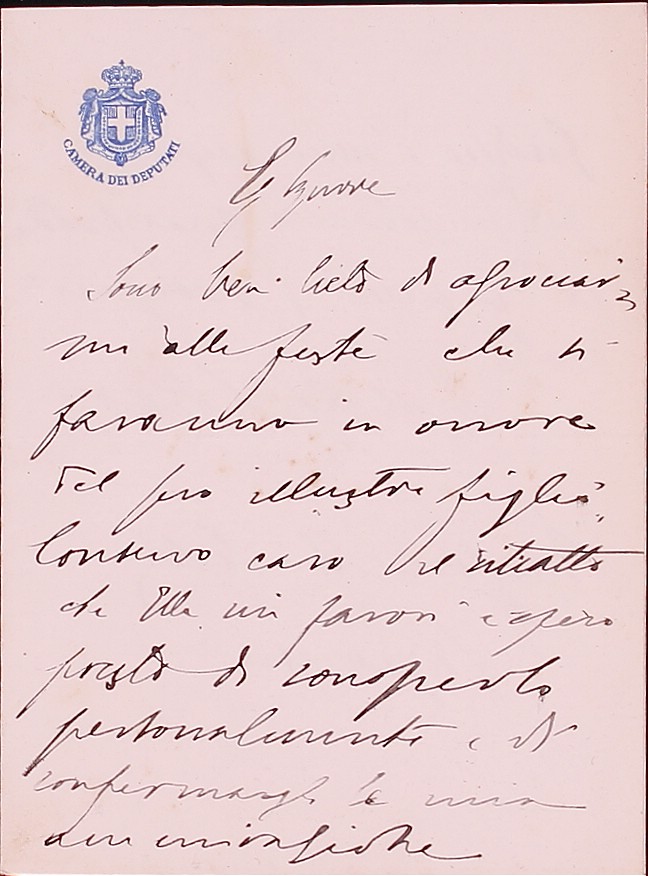 CAMERA DEI DEPUTATI
Eg Signore
Sono ben lieto di associar
mi alle feste che si
faranno in onore
del suo illustre figlio.
Conservo caro il ritratto
che Ella mi favorì e spero
presto di conoscerlo
personalmente e di
confermargli la mia
ammirazione